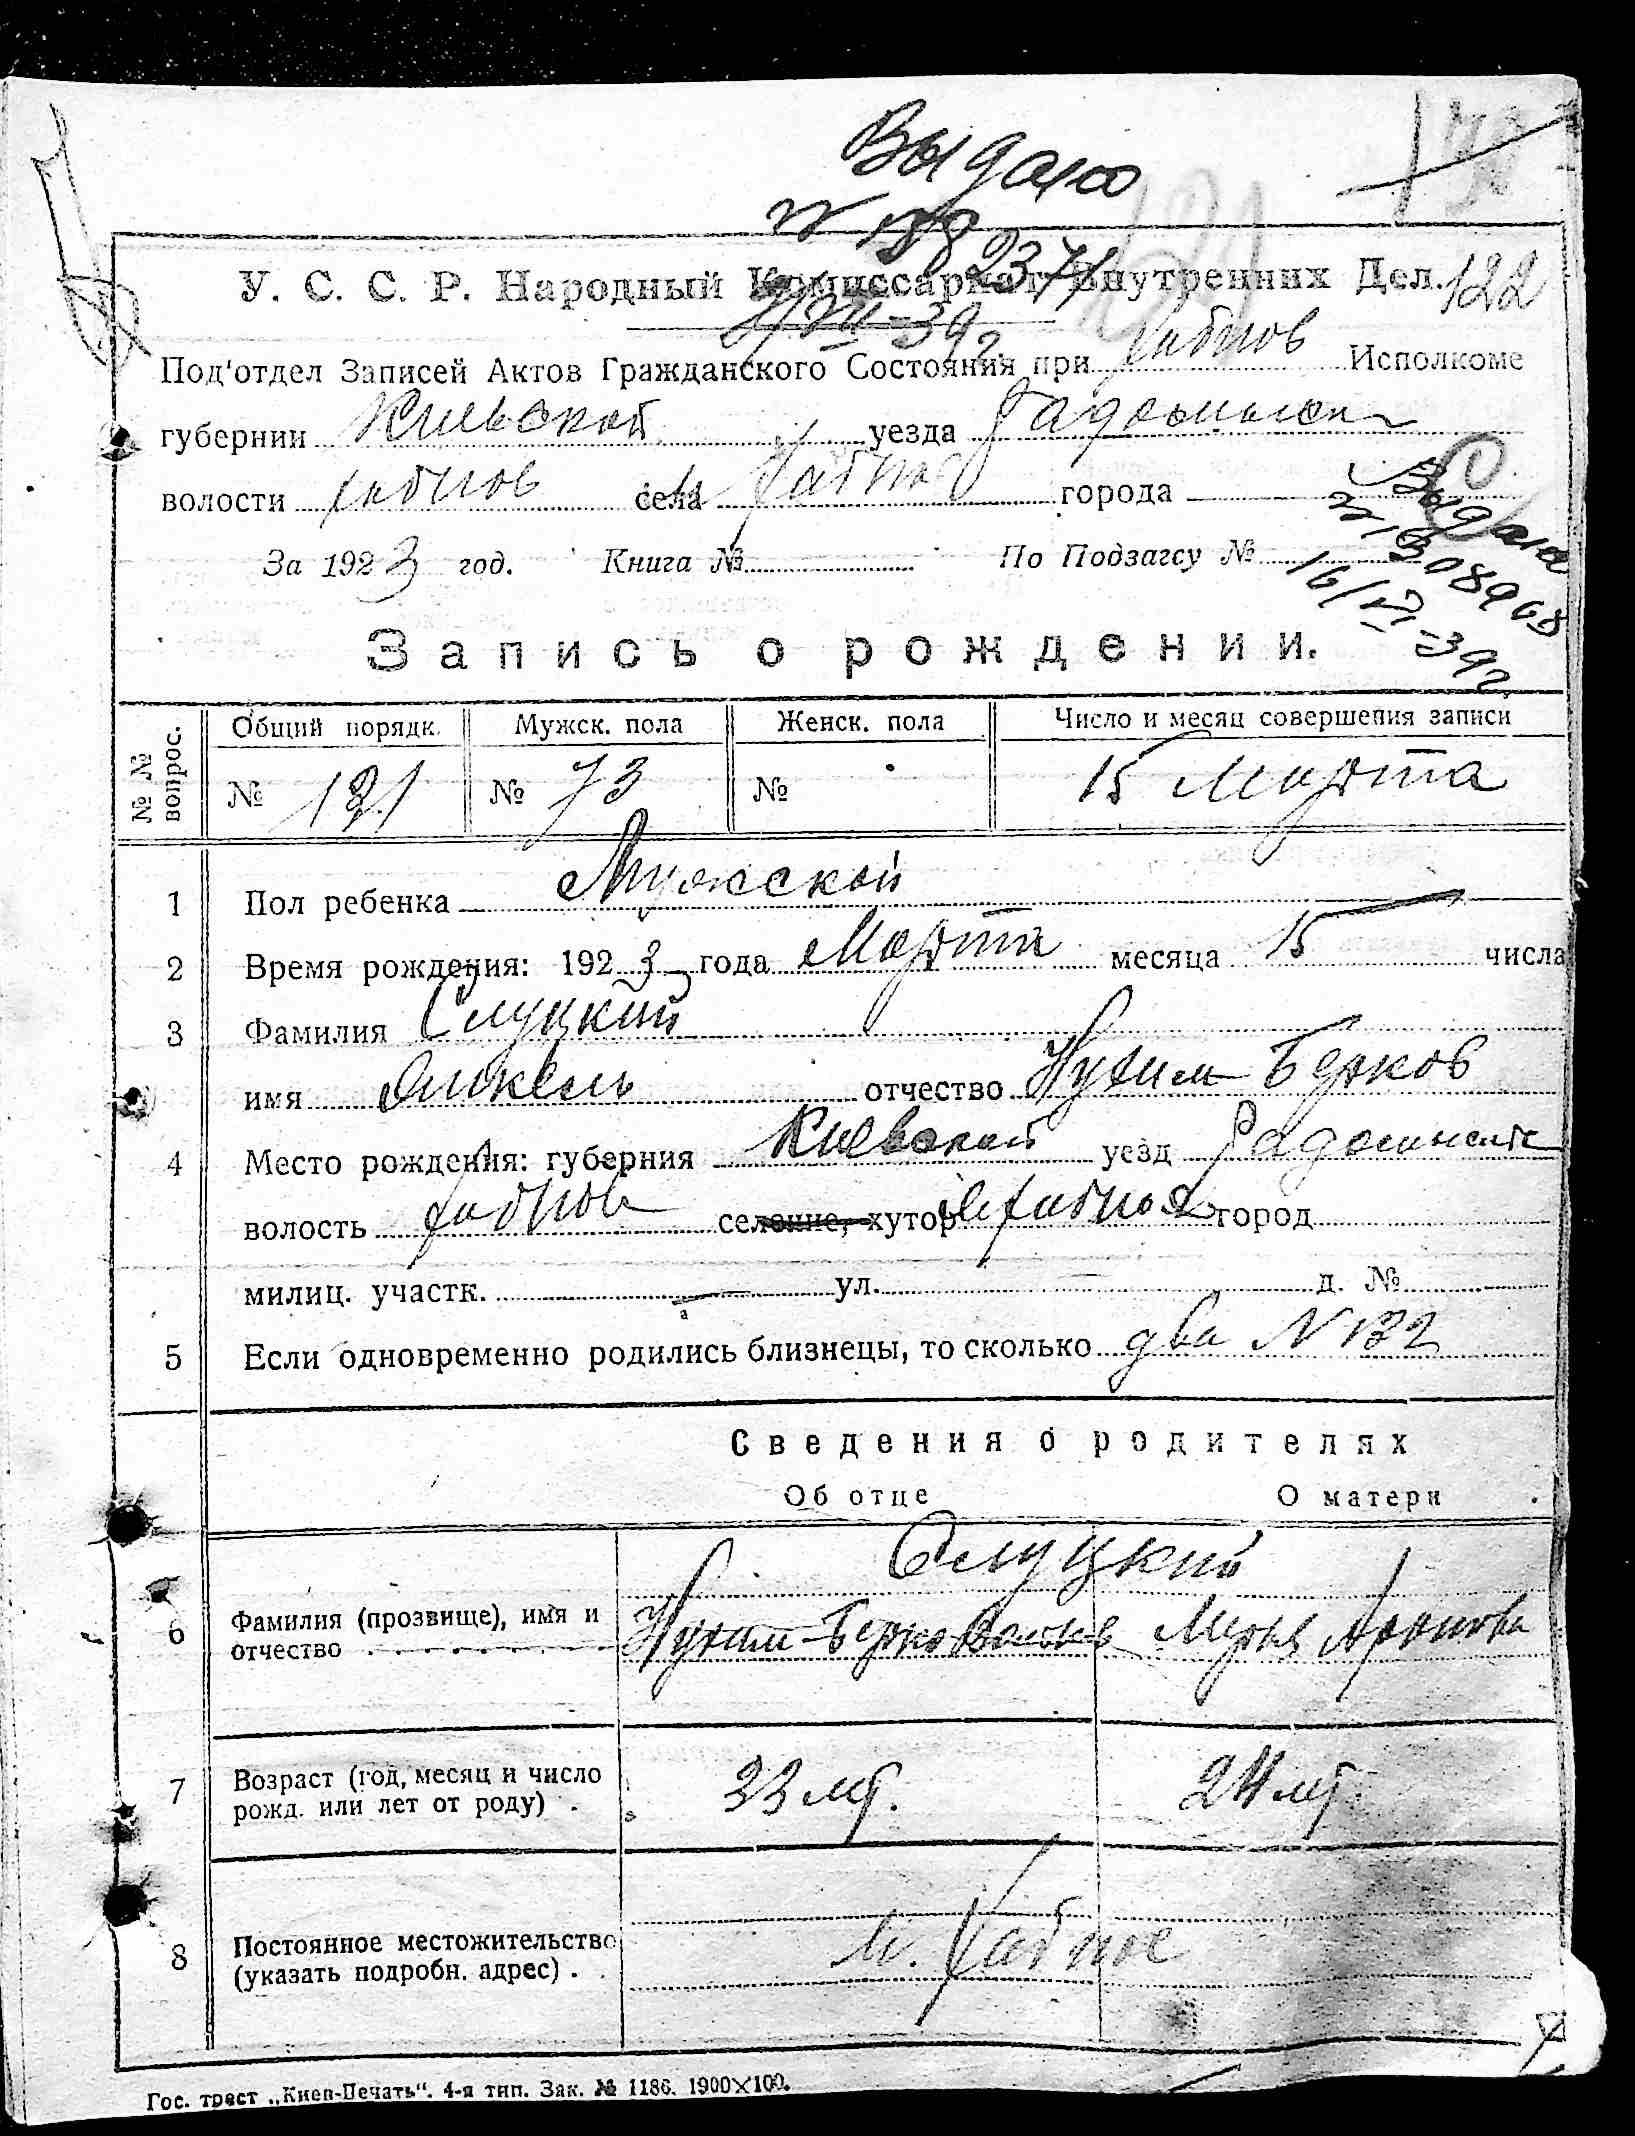 Выдано
№ 188237
У. С. С. Р. Народный Комиссариат Внутренних Дел. 122
Под'отдел Записей Актов Гражданского Состояния при Хабнов Исполкоме
губернии Киевской уезда Радомысл
волости Хабнов села м Хабное города
За 1923 год. Книга № По Подзагсу №
Выдано
16/VI-39г
Запись о рождении.
№ № вопрос.
Общий порядк. Мужск. пола Женск. пола Число и месяц совершения записи
№ 131 № 73 № 15 Марта
1 Пол ребенка Мужской
2 Время рождения: 1923 года Марта месяца 15 числа
3 Фамилия Слуцкий
имя отчество Нухим-Берков
4 Место рождения: губерния Киевской уезд Радомысл
волость Хабнов селение, хутор м Хабное город
милиц. участк. — ул. д. №
5 Если одновременно родились близнецы, то сколько два N 132
Сведения о родителях
Об отце О матери
Слуцкий
6 Фамилия (прозвище), имя и
отчество Нухим-Берко
7 Возраст (год, месяц и число
рожд. или лет от роду) . 33 лет. 24 лет
8 Постоянное местожительство
(указать подробн. адрес) . м. Хабное
Гос. трест „Киев-Печать“. 4-я тип. Зак. № 1186. 1900×100.